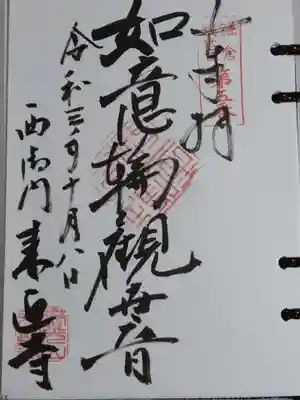 奉拝
鎌倉第五番
如意輪観世音
令和三年十月八日
西御門 来迎寺